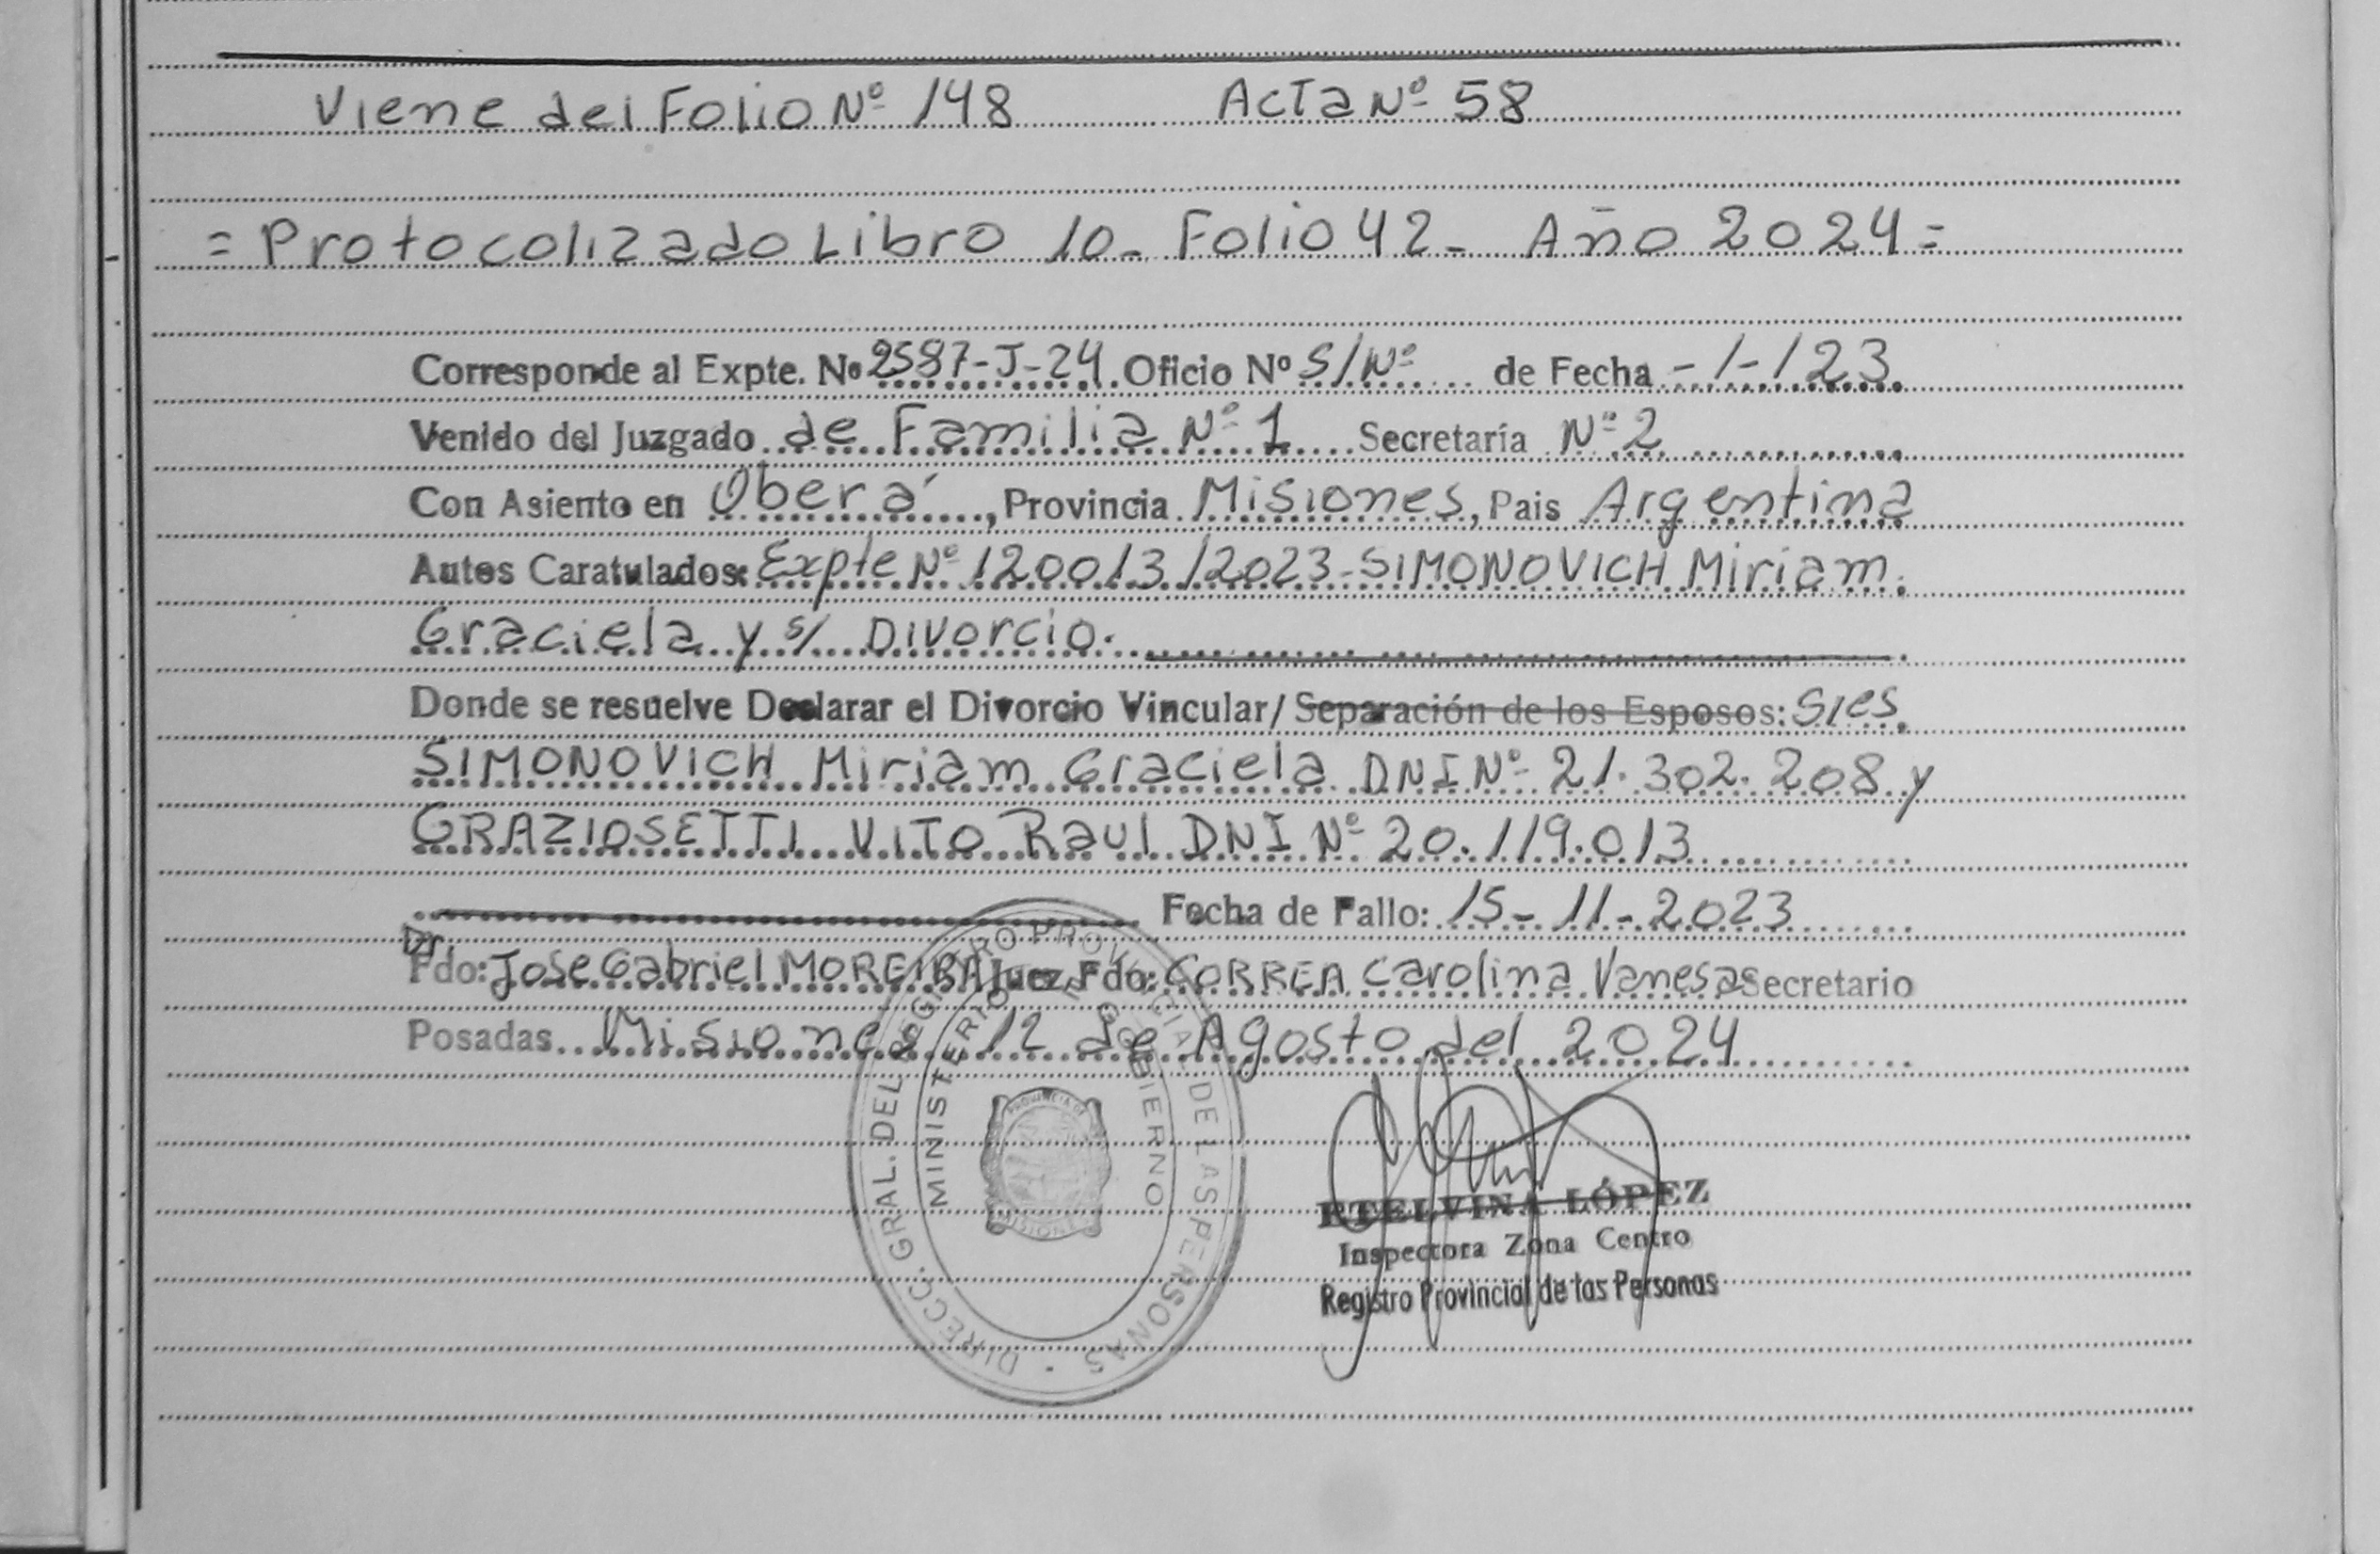 Viene del Folio Nº 148 Acta Nº 58
= Protocolizado Libro 10 - Folio 42 - Año 2024 =
Corresponde al Expte. Nº 2587-J-24 Oficio Nº S/Nº de Fecha -/-/23
Venido del Juzgado de Familia Nº 1 Secretaría Nº 2
Con Asiento en Oberá, Provincia Misiones, Pais Argentina
Autos Caratulados: Expte Nº 120013/2023-SIMONOVICH Miriam
Graciela y s/ Divorcio.
Donde se resuelve Declarar el Divorcio Vincular/ Separación de los Esposos: S/es
SIMONOVICH Miriam Graciela DNI Nº 21.302.208 y
GRAZIOSETTI VITO Raul DNI Nº 20.119.013
Fecha de Fallo: 15-11-2023
Dr.
Fdo: Jose Gabriel MOREIRA Juez Fdo: CORREA Carolina Vanesa Secretario
Posadas Misiones 12 de Agosto del 2024
DIRECC. GRAL. DEL REGISTRO PROVINCIAL DE LAS PERSONAS
MINISTERIO DE GOBIERNO
PROVINCIA DE
MISIONES
ETELVINA LÓPEZ
Inspectora Zona Centro
Registro Provincial de las Personas